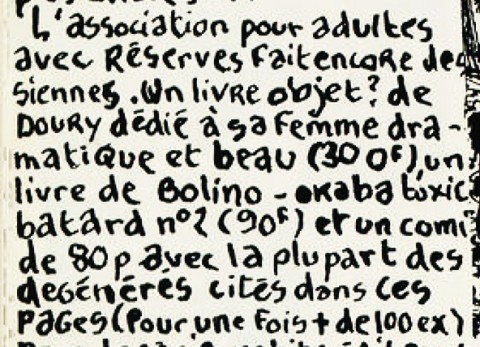 L'association pour adultes
avec Réserves fait encore des
siennes. Un livre objet? de
Doury dédié à sa femme dra-
matique et beau (300F), un
livre de Bolino - okaba toxic
batard n°2 (90F) et un comi
de 80p avec la plupart des
degénérés cités dans ces
pages (pour une fois + de 100 ex)